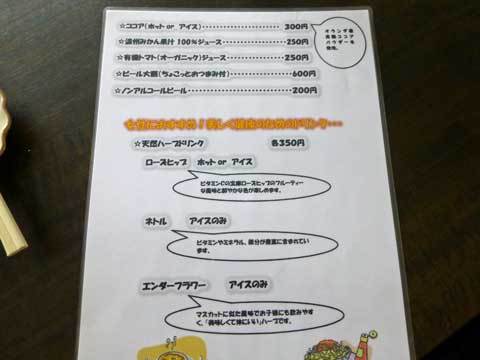 ☆ココア(ホット or アイス)・・・・・・・・・・・・・・・300円
オランダ産
有機ココア
パウダーを
使用。
☆温州みかん果汁100%ジュース・・・・・・・・・・・250円
☆有機トマト(オーガニック)ジュース・・・・・・・・・・250円
☆ビール大瓶(ちょこっとおつまみ付)・・・・・・・・・・600円
☆ノンアルコールビール・・・・・・・・・・・・・・・・200円
女性におすすめ!美しく健康のためのドリンク・・・
☆天然ハーブドリンク 各350円
ローズヒップ ホット or アイス
ビタミンCの宝庫ローズヒップのフルーティー
な風味と鮮やかな色が楽しめます。
ネトル アイスのみ
ビタミンやミネラル、鉄分が豊富に含まれてい
ます。
エンダーフラワー アイスのみ
マスカットに似た風味でお子様にも飲みやす
く、「美味しくて体にいい」ハーブです。